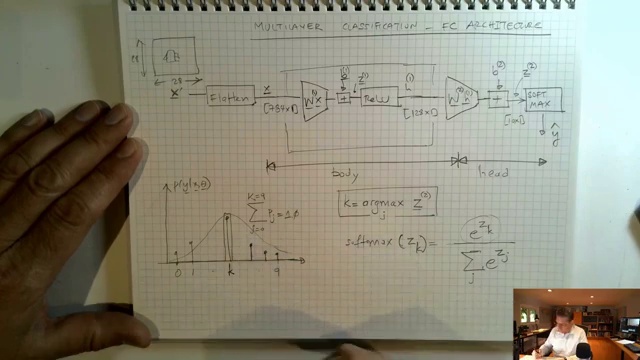 MULTILAYER CLASSIFICATION - FC ARCHITECTURE
28
28
X
Flatten
x
[784x1]
W⁽¹⁾x
b⁽¹⁾
+
z⁽¹⁾
ReLU
h⁽¹⁾
[128x1]
W⁽²⁾h⁽¹⁾
b⁽²⁾
+
z⁽²⁾
[10x1]
SOFT
MAX
ŷ
body
head
p(y|x,θ)
K=9
∑ P̂j = 1.0
j=0
0 1 .. k 9
K = argmax z⁽²⁾
j
softmax (zk) = e^zk
∑ e^zj
j